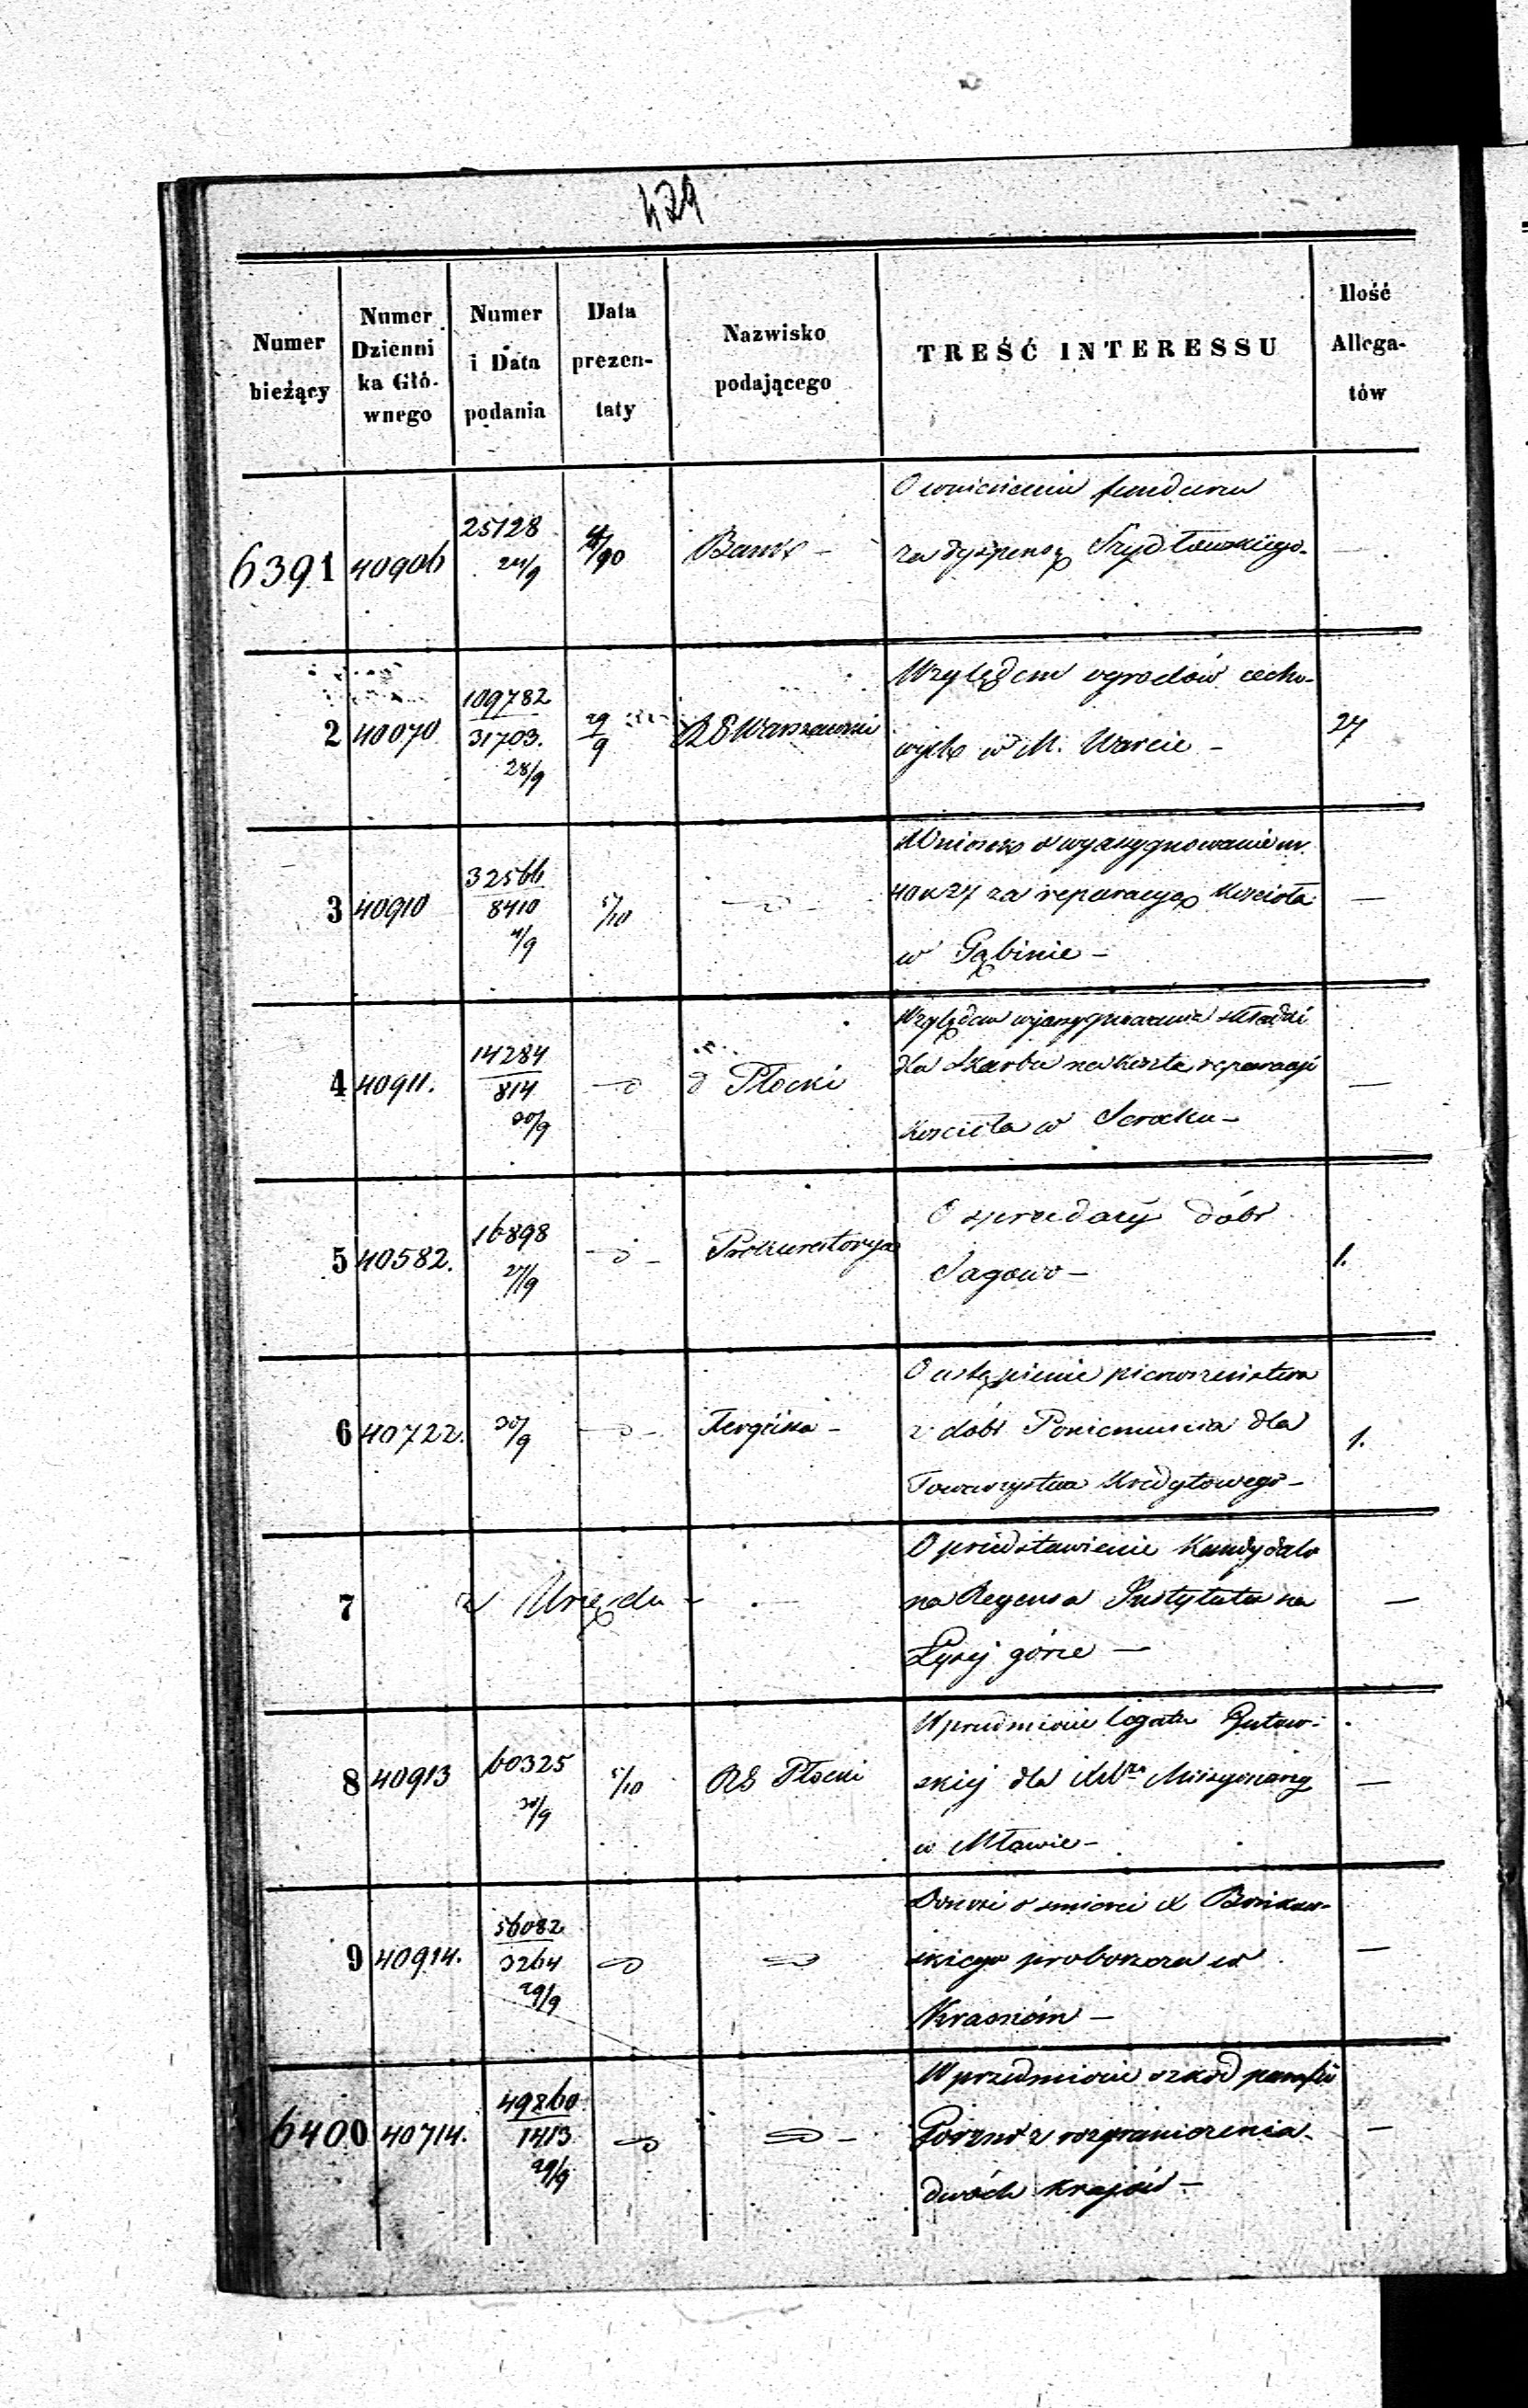 429
Numer bieżący
Numer Dzienni ka Głó- wnego
Numer i Data podania
Data prezen- taty
Nazwisko podającego
TREŚĆ INTERESSU
Ilość Allega- tów
6391 40906 25128 24/9 Bank -
O wniesienie funduszu
za dyspensę Szydłowskiego. —
2 40070 109782 31703. 28/9 29/9 RG Warszawski 27
Względem ogrodów cecho-
wych w M. Warcie -
3 40910 32566 8410 4/9 5/10 —
Wniosek o wyasygnowanie
40 k 27 za reparacyą Kościoła
w Gąbinie -
4 40911. 14284 814 30/9 d Płocki —
Względem wyasygnowania składki
dla Skarbu na koszta reparacji
Kościoła w Serocku -
5 40582. 16898 27/9 Prokuratorya 1.
O sprzedaży dóbr
Sagowo -
6 40722. 30/9 1.
O ustąpienie pierwszeństwa
z dóbr Poniemunia dla
Towarzystwa Kredytowego -
7 z Urzędu - —
O przedstawienie Kandydata
na Regensa Instytutu na
Łysej górze —
8 40913 60325 30/9 5/10 RG Płocki —
W przedmiocie legatu
skiej dla Missyonarzy
w Mławie -
9 40914. 56082 3264 29/9 —
Donosi o śmierci X
skiego proboszcza w
Krasném -
6400 40714. 49860 1413 29/9 —
W przedmiocie szkód
z rozgraniczenia
dwóch krajów -